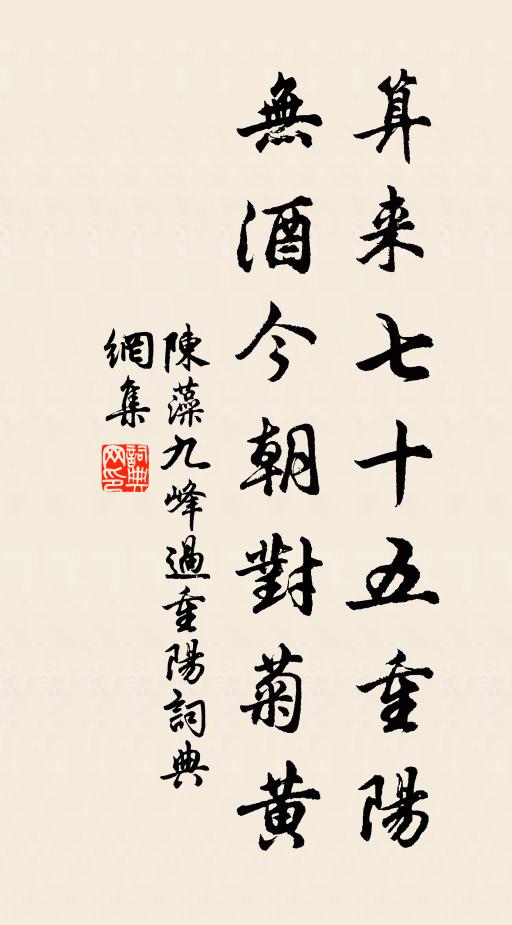 算来七十五重陽
無酒今朝對菊黄
陳藻九峰過重陽詞典
網集
詞典网印